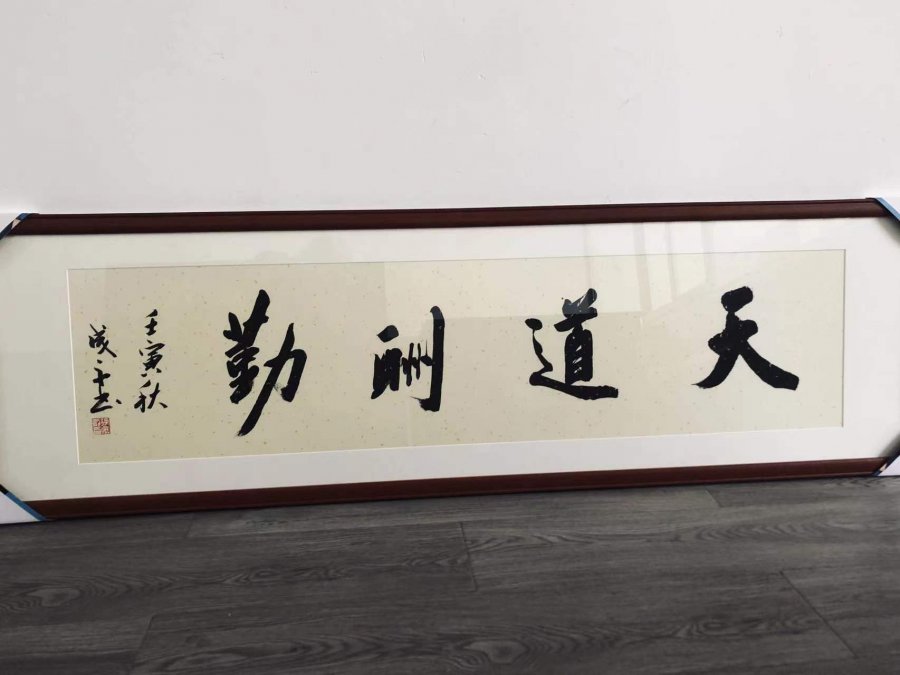 天道酬勤
壬寅秋
成平书